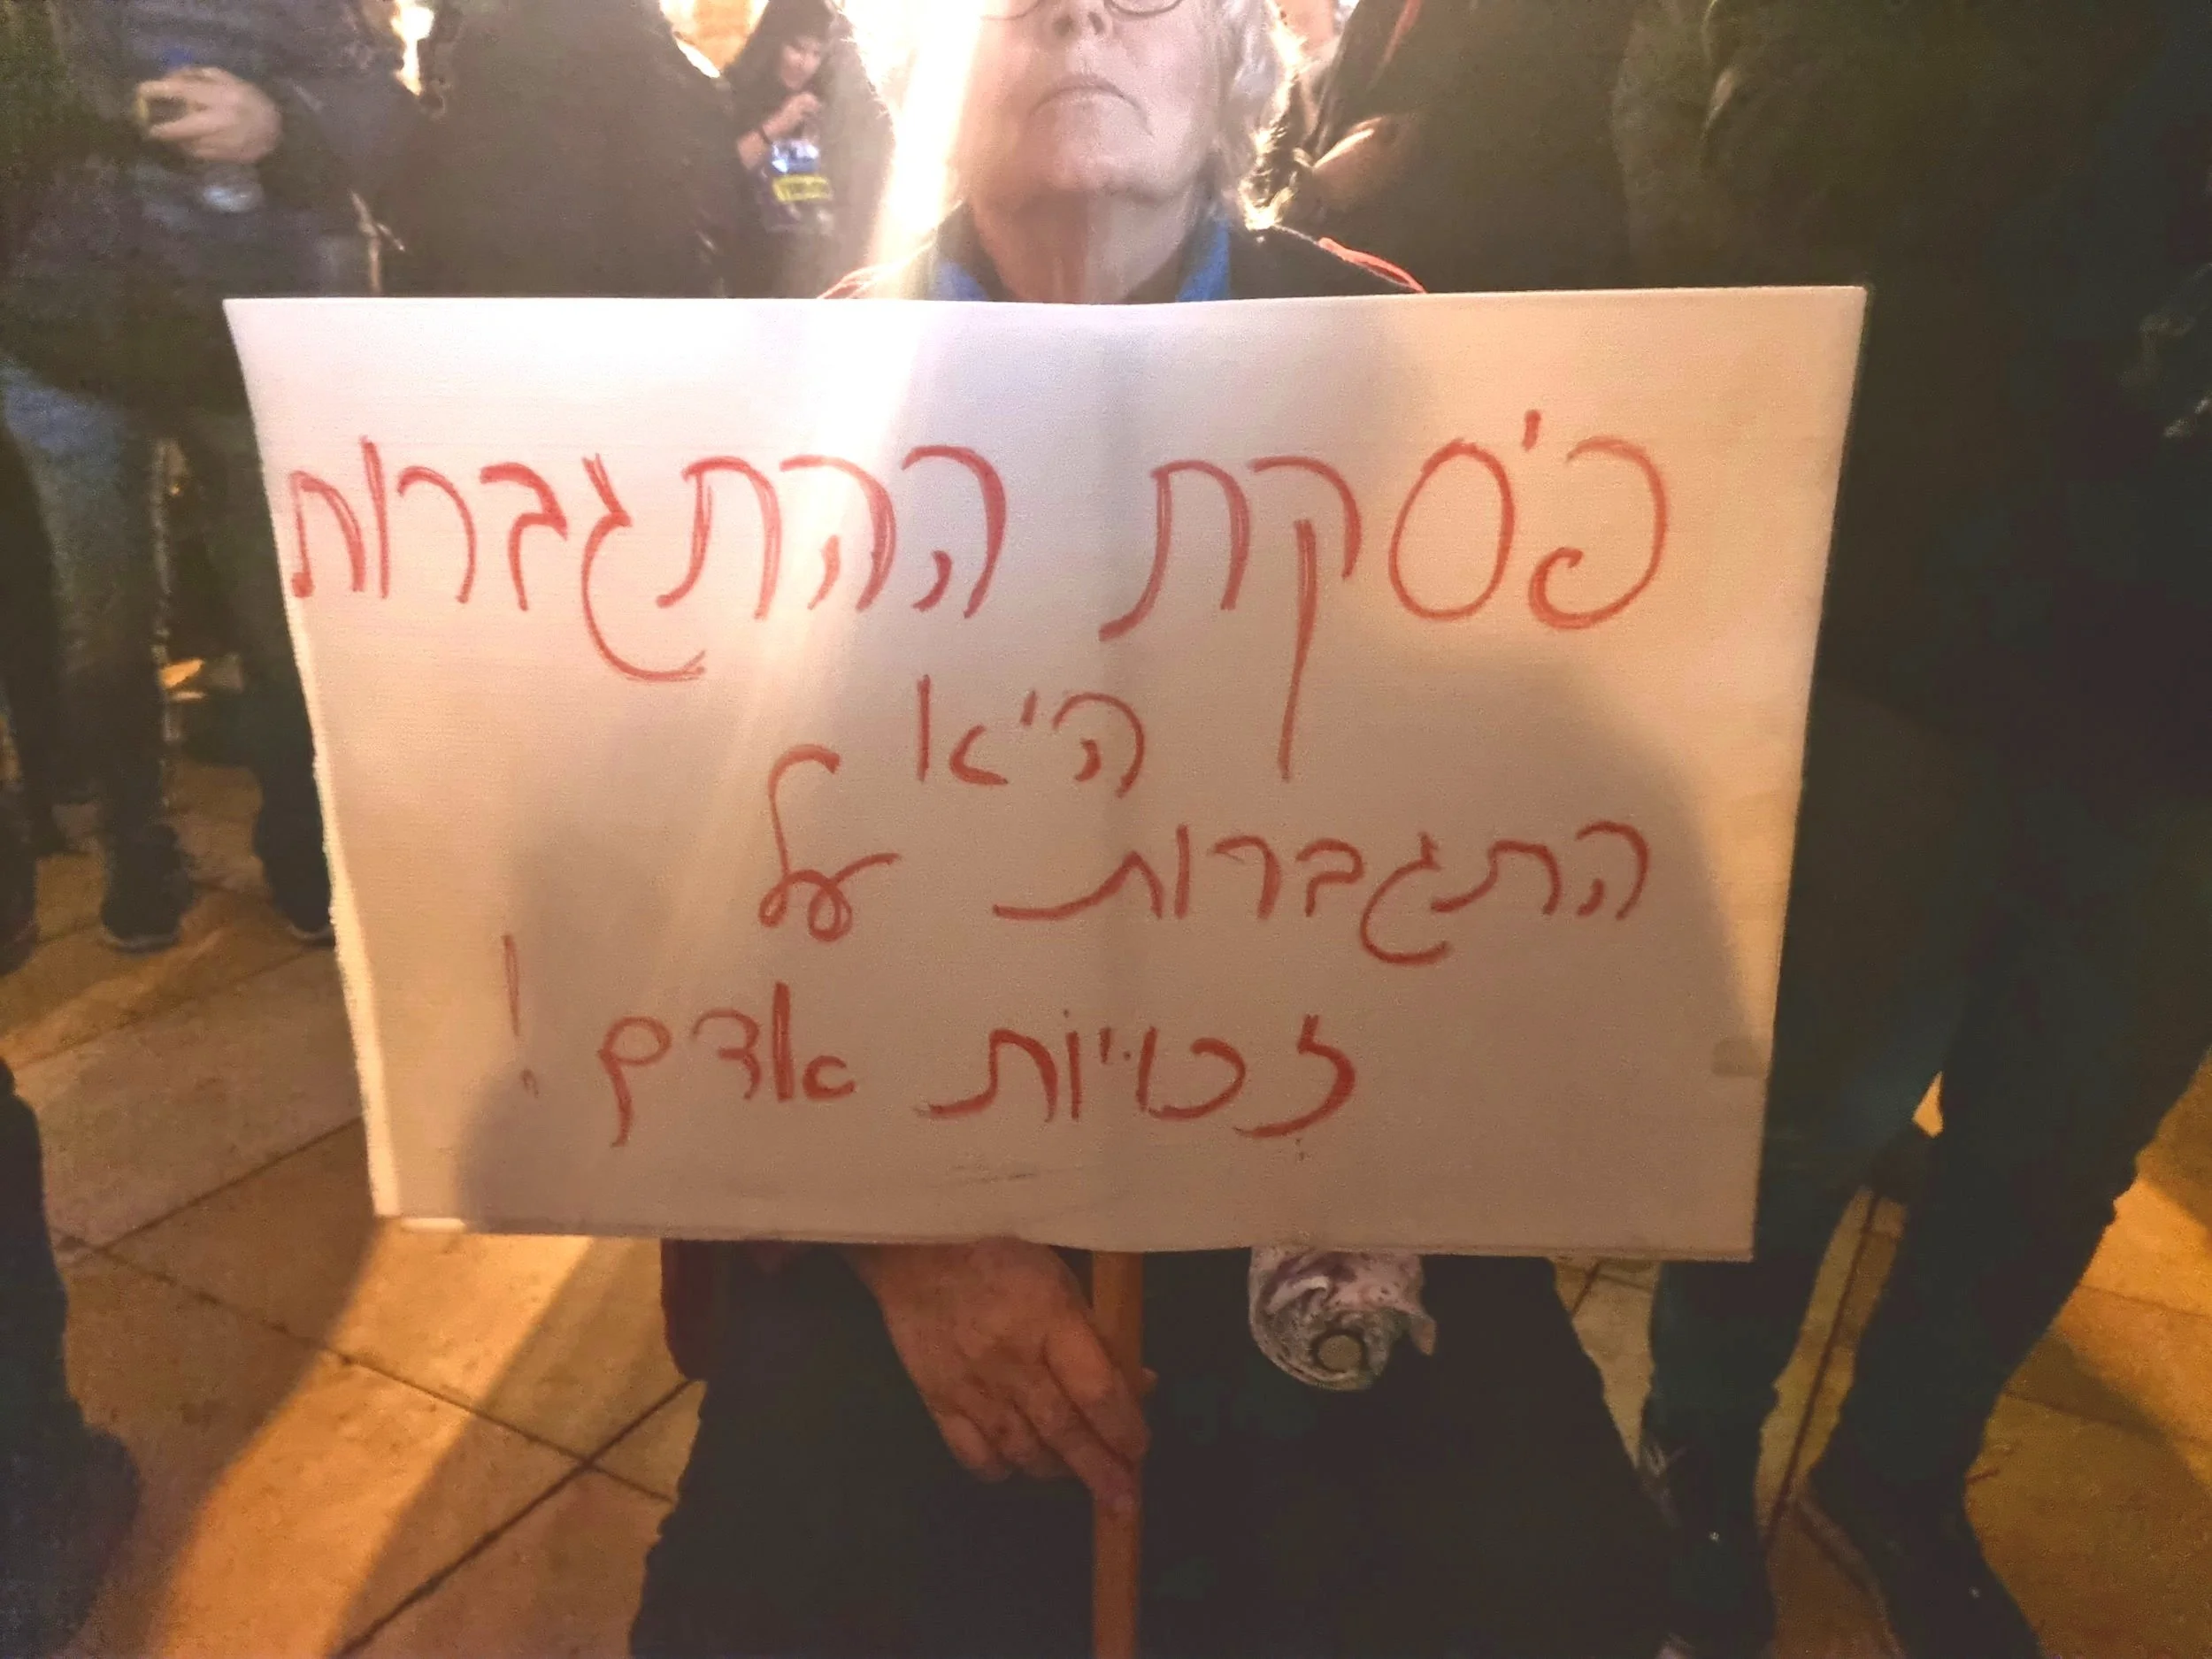 פיסקת ההתגברות
היא
התגברות על
זכויות אדם!